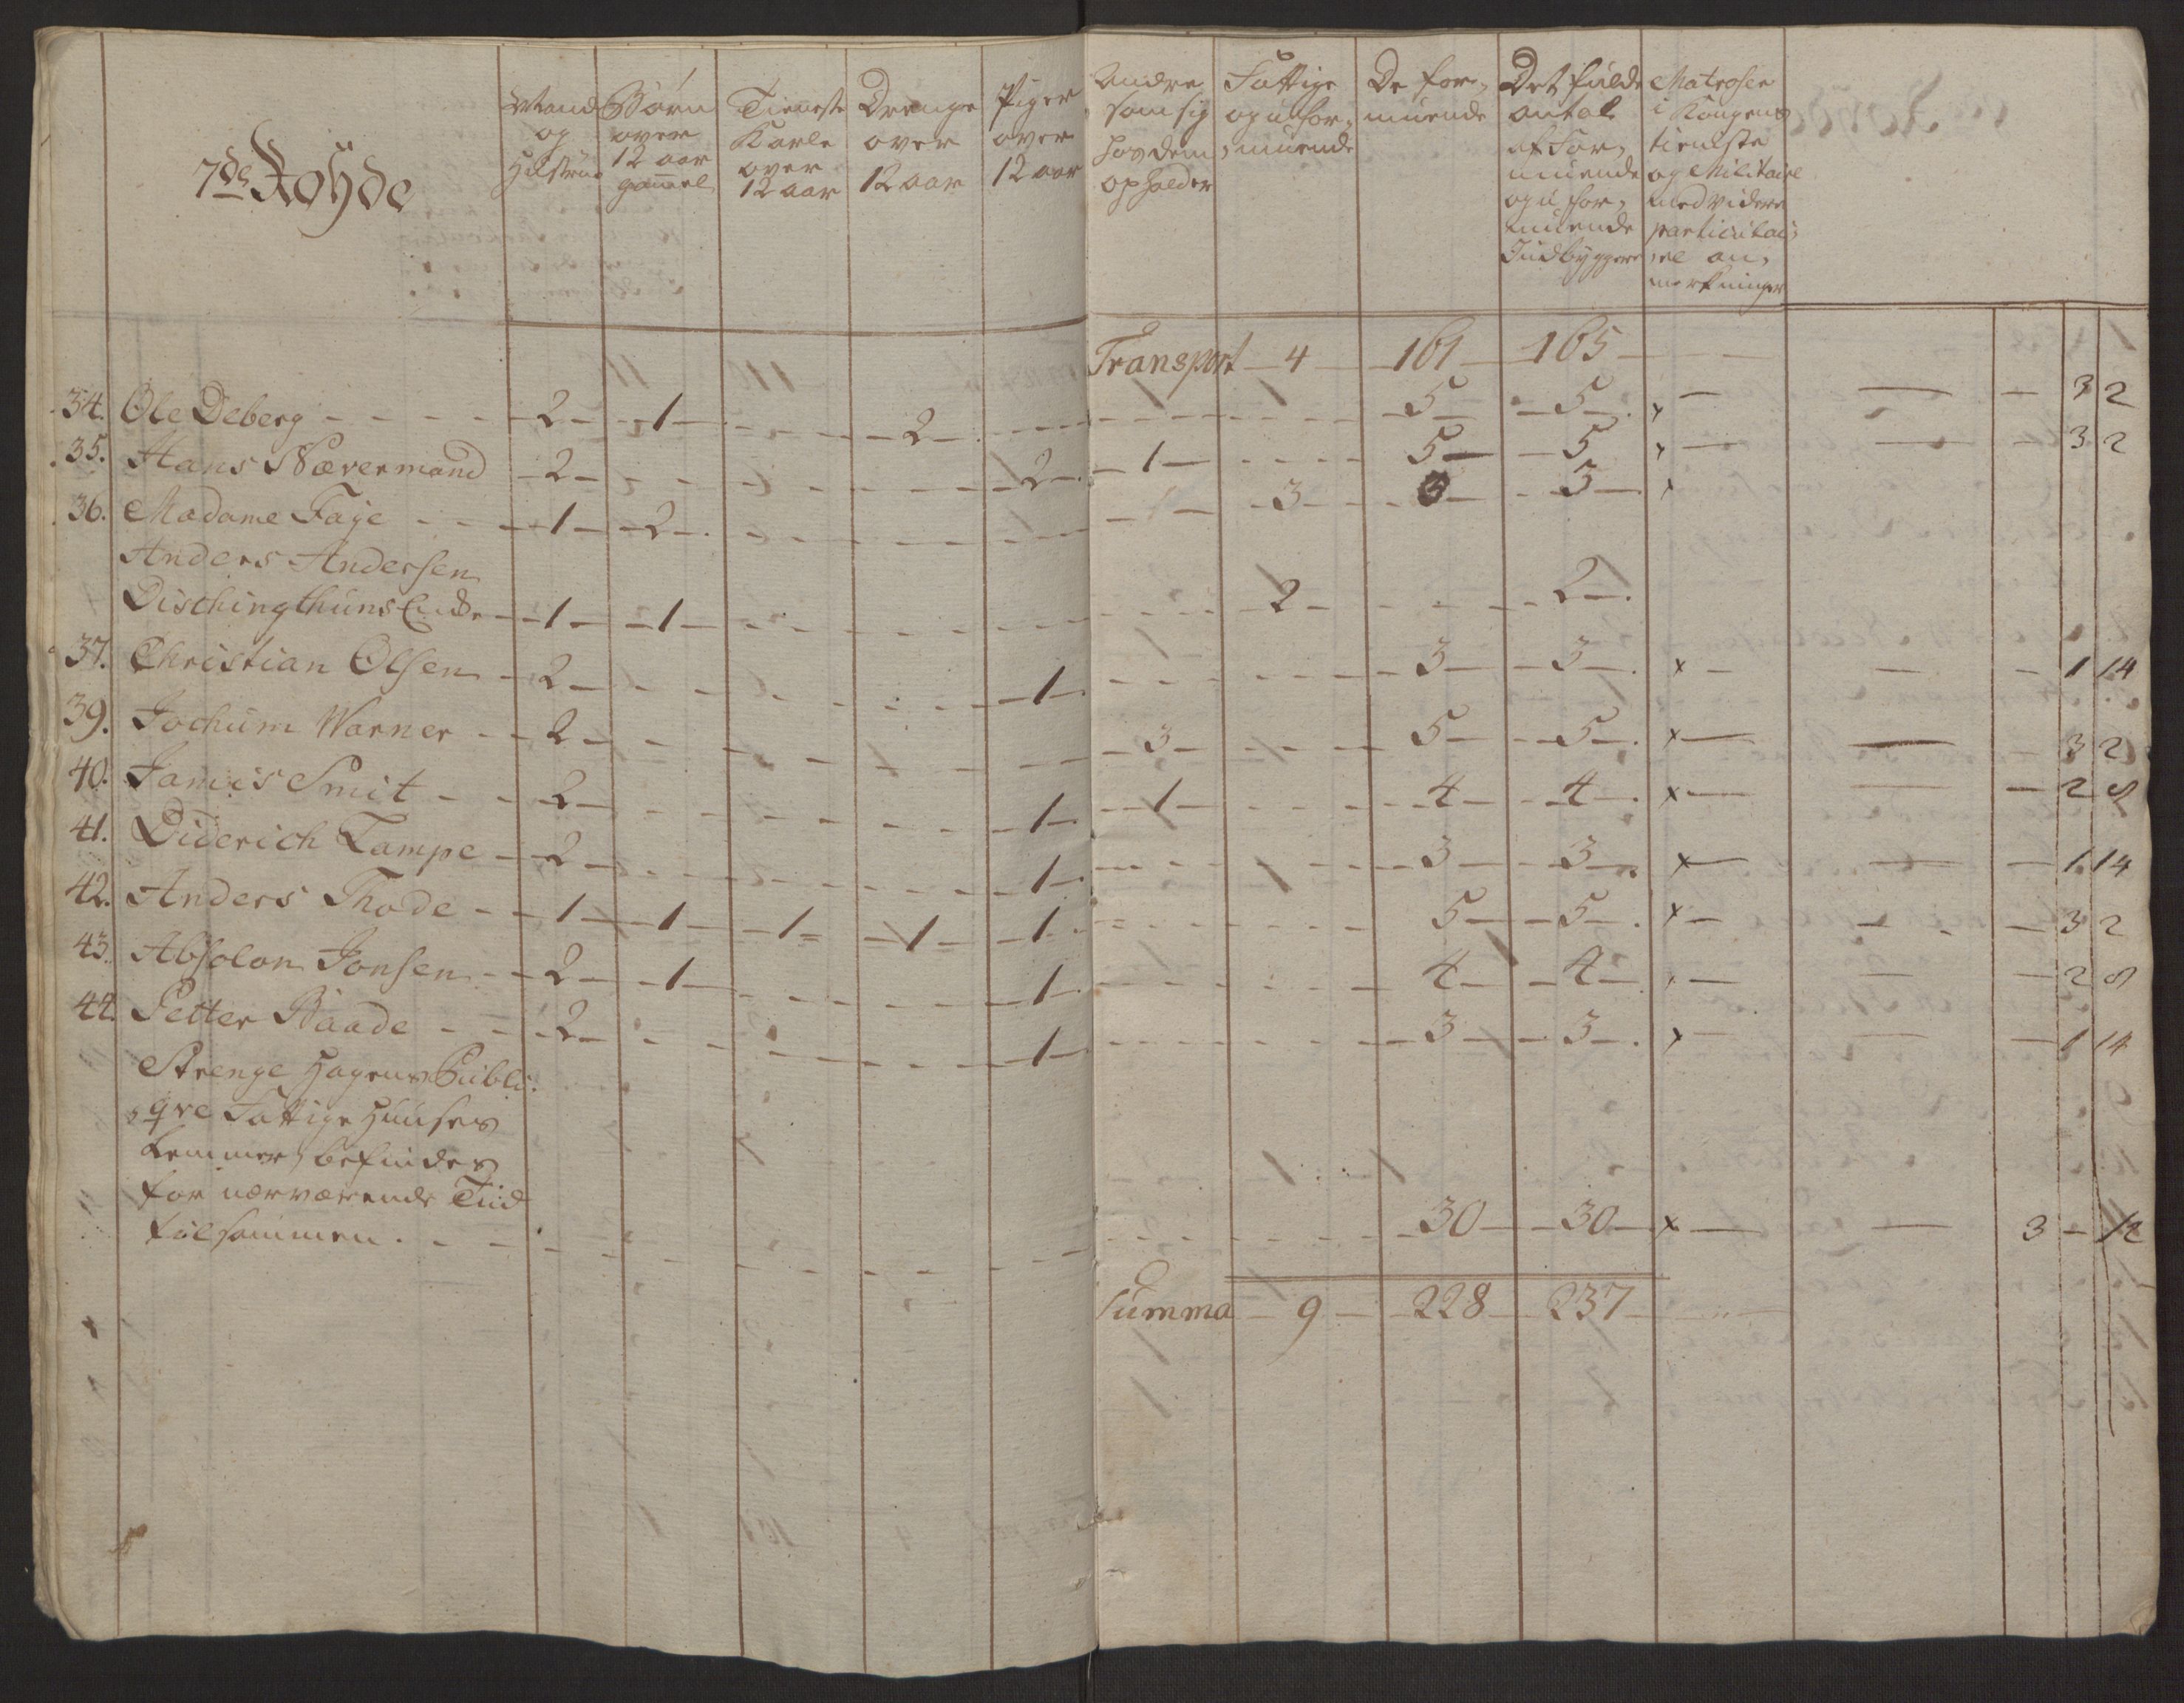 7de Royde
Mand og Hustrue
Børn over 12 aar gamel
Tieneste Karle over 12 aar
Drenge over 12 aar
Piger over 12 aar
Andre som sig hos dem opholder
Fattige og ufor, muende
De for, muende
Det fulde antal af For, muende og ufor, muende Indbyggere
Matroser i Kongens tieneste og Militaire med videre particulai, re an, merkninger
Transport 4 161 165
34. Ole Deberg 2 1 2 5 5 x 3 2
35. Hans Nævermand 2 2 1 5 5 x 3 2
36. Madame Faye 1 2 3 3 3 x
Anders Andersen
Dischingthuns Encke 1 1 2 2
37. Christian Olsen 2 1 3 3 x 1 14
39. Jochum Warner 2 3 5 5 x 3 2
40. Jamis Smit 2 1 1 4 4 x 2 8
41. Diderich Lampe 2 1 3 3 x 1 14
42. Anders Thode 1 1 1 1 1 5 5 x 3 2
43. Absolon Jonsen 2 1 1 4 4 2 8
44. Petter Baade 2 1 3 3 x 1 14
Strenge Hagens Publi,
qve Fattige Huuses
Lemmer, befindes
for nærværende Tiid
tilsammen. 30 30 x 3 12
Summa 9 228 237